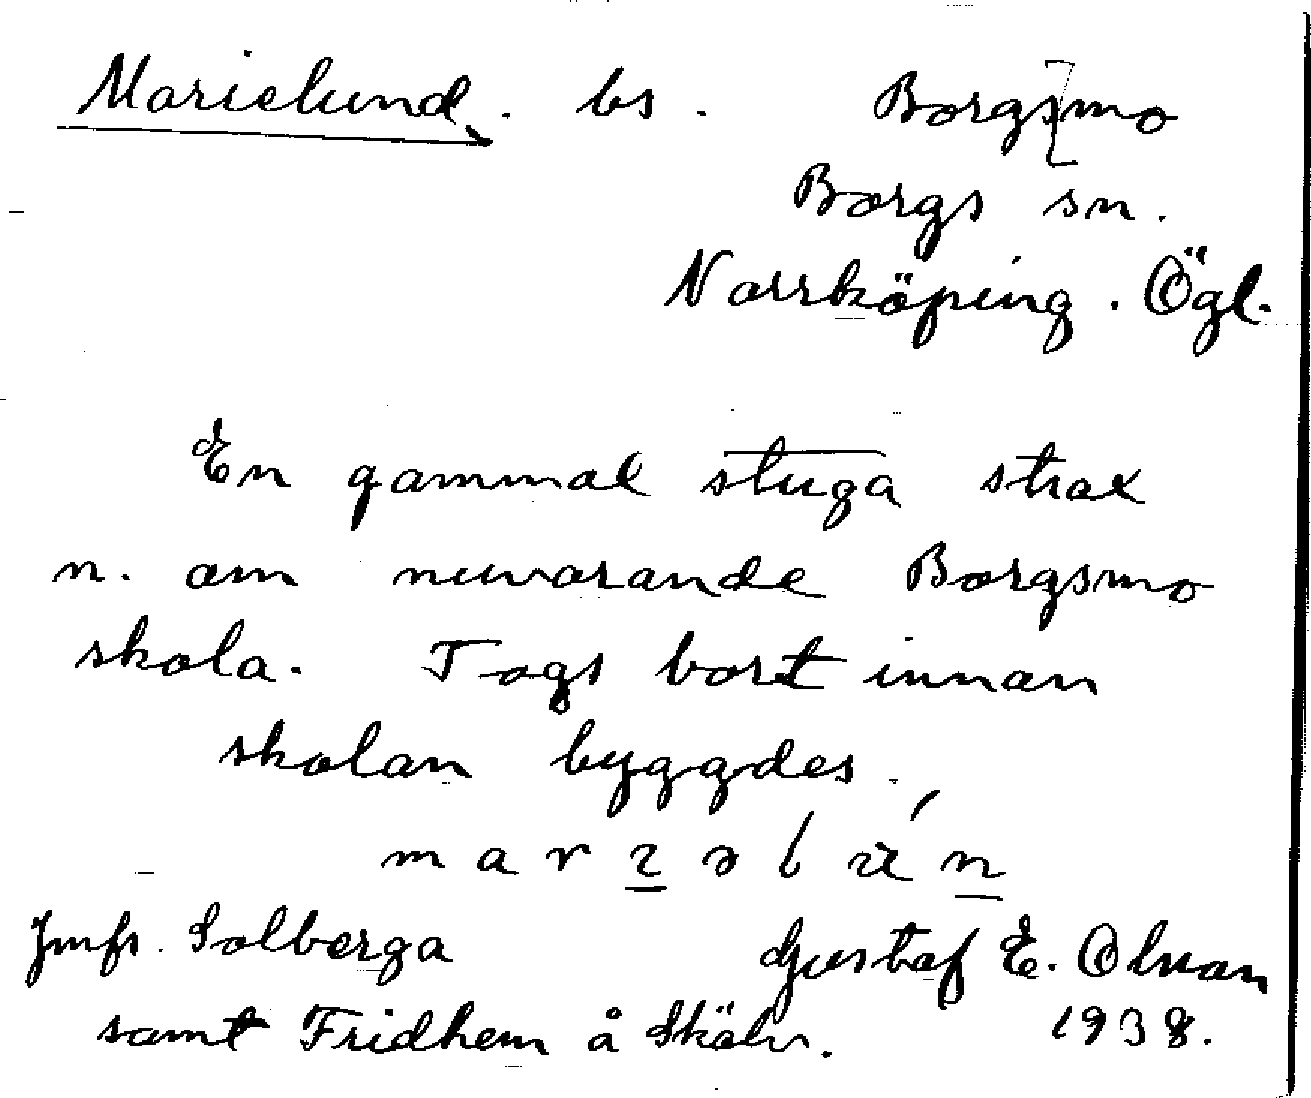 Marielund. bs. Borgsmo
Borgs sn.
Norrköping. Ögl.
En gammal stuga strax
n. om nuvarande Borgsmo
skola. Togs bort innan
skolan byggdes.
Jmfr. Solberga
Gustaf E. Olsson
samt Fridhem å
1938.